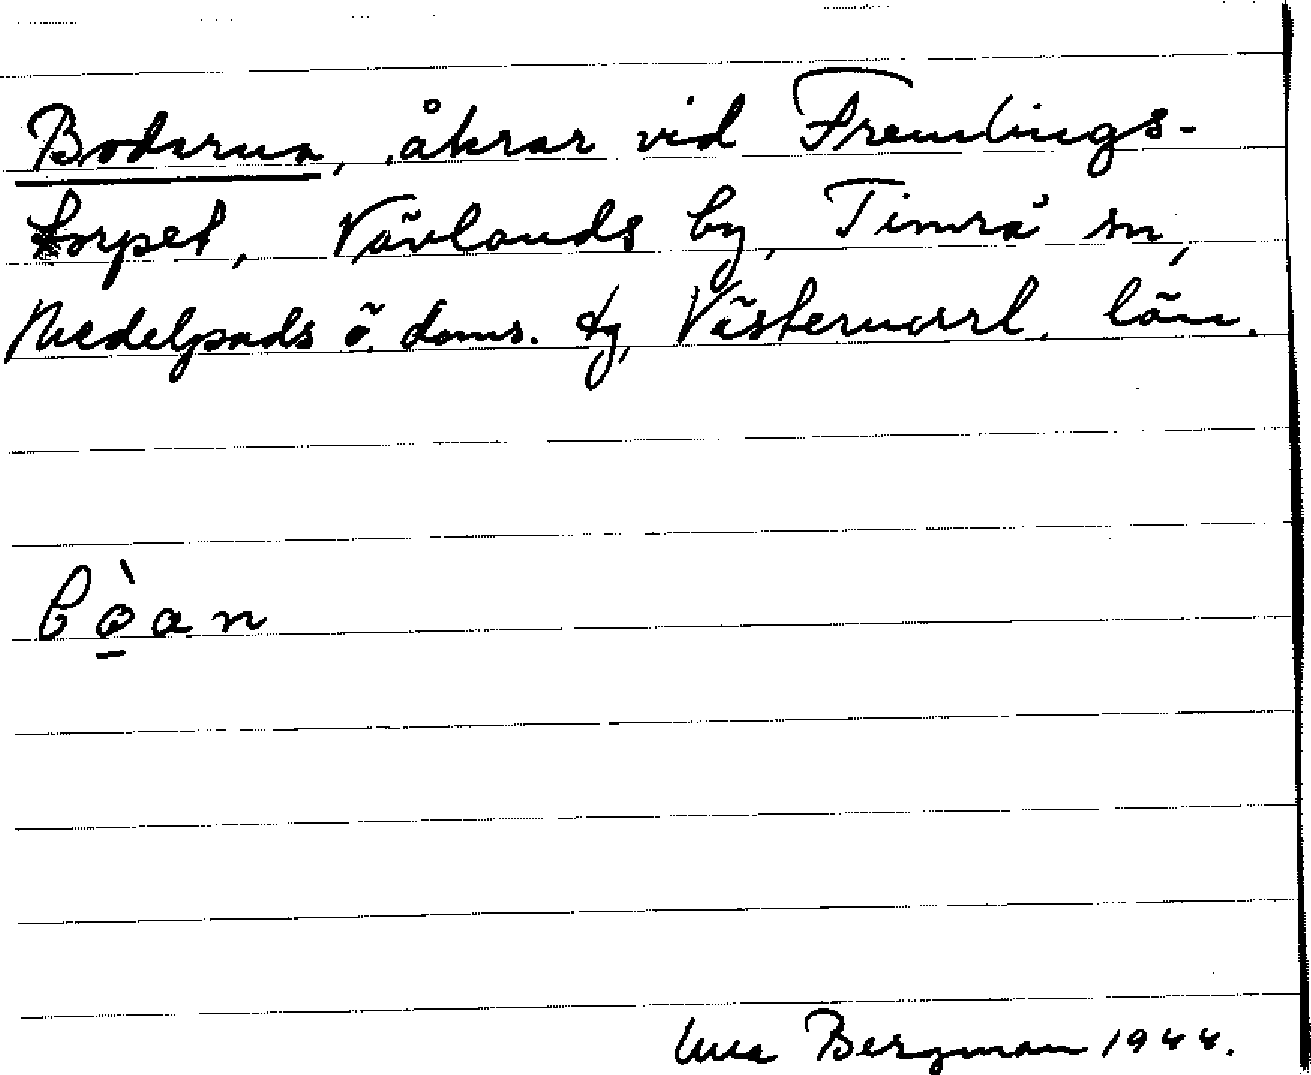 Bodarna, åkrar vid Fremlings-
torpet, Vävlands by, Timrå sn,
Medelpads ö. doms. tg, Västernorrl. län.
bò̠an
Bergman 1944.